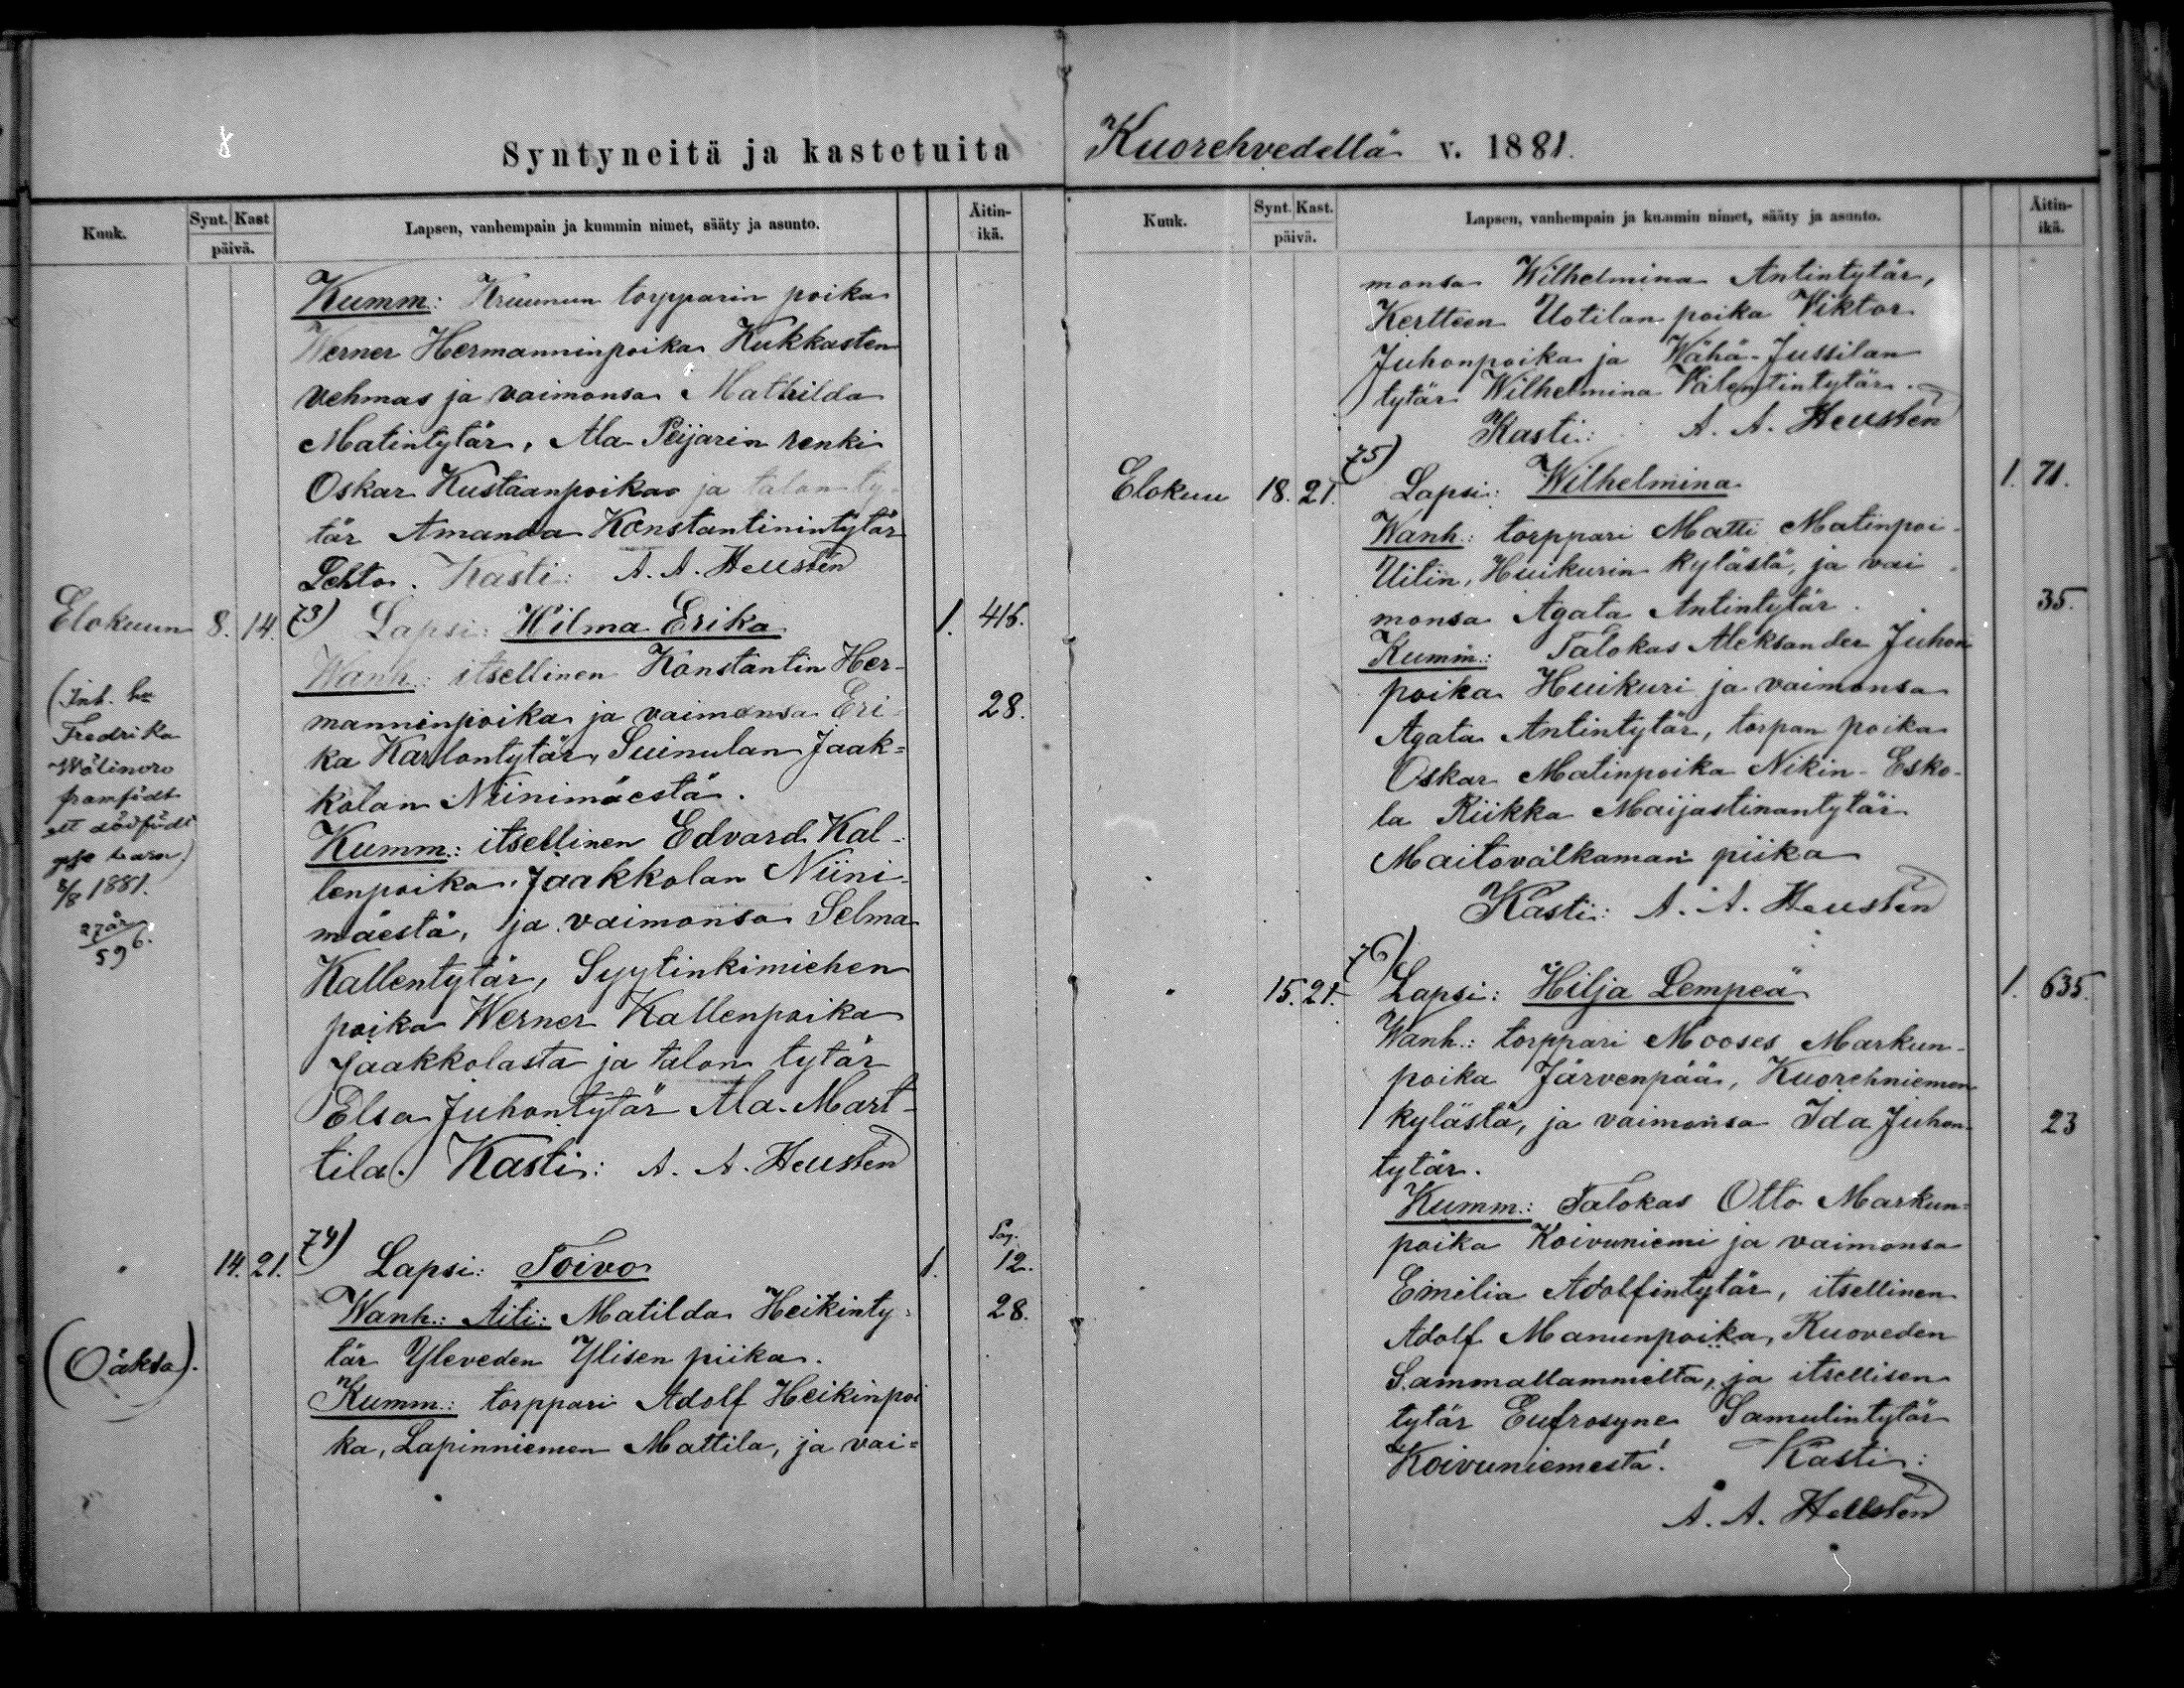 Syntyneitä ja kastetuita Kuorehvedellä v. 1881.
Kuuk.
Synt. Kast
päivä.
Lapsen, vanhempain ja kummin nimet, sääty ja asunto.
Äitin-
ikä.
Kumm: Kruunun torpparin poika
Werner Hermanninpoika Kukkasten
vehmas ja vaimonsa Mathilda
Matintytär, Ala Peijarin renki
Oskar Kustaanpoika ja talon ty-
tär Amanda Konstantinintytär
Lehto. Kasti: A. A. Heusten
Elokuun 8. 14. 73) Lapsi: Hilma Erika 1. 416.
Wanh: itsellinen Konstantin Her-
manninpoika ja vaimonsa Eri- 28.
ka Karlontytär, Suinulan Jaak-
kolan Niinimäestä.
Kumm: itsellinen Edvard Kal-
lenpoika Jaakkolan Niini-
mäestä, ja vaimonsa Selma
Kallentytär, Syytinkimiehen
poika Werner Kallenpoika
Jaakkolasta ja talon tytär
Elsa Juhontytär Ala-Mart-
tila. Kasti: A. A. Heusten
(Inh.
Fredrika
framfödt
ett dödfödt
barn)
8/8 1881.
27 år
596.
" 14. 21. 74) Lapsi: Toivo 1. Pag. 12.
Wanh.: Äiti: Matilda Heikinty- 28.
tär Yleveden Ylisen piika.
Kumm: torppari Adolf Heikinpoi
ka, Lapinniemen Mattila, ja vai-
(Oäkta).
Kuuk.
Synt. Kast.
päivä.
Lapsen, vanhempain ja kummin nimet, sääty ja asunto.
Äitin-
ikä.
monsa Wilhelmina Antintytär,
Kertteen Uotilan poika Viktor
Juhonpoika ja Wähä-Jussilan
tytär Wilhelmina Valentintytär.
Kasti: A. A. Heusten
Elokuu 18. 21. 75) Lapsi: Wilhelmina 1. 71.
Wanh: torppari Matti Matinpoi-
Uitin, Huikurin kylästä, ja vai-
monsa Agata Antintytär. 35.
Kumm.: Talokas Aleksander Juhon
poika Huikuri ja vaimonsa
Agata Antintytär, torpan poika
Oskar Matinpoika Nikin-Esko-
la Riikka Maijastinantytär
Maitovalkaman piika
Kasti: A. A. Heusten
" 15. 21. 76) Lapsi: Hilja Lempeä 1. 635.
Wanh.: torppari Mooses Markun-
poika Järvenpää, Kuorehniemen
kylästä, ja vaimonsa Ida Juhon- 23
tytär.
Kumm.: Talokas Otto Markun-
poika Koivuniemi ja vaimonsa
Emilia Adolfintytär, itsellinen
Adolf Manunpoika, Kuoveden
Sammallammilta, ja itsellisen
tytär Eufrosyne Samulintytär
Koivuniemestä. Kasti:
A. A. Heusten